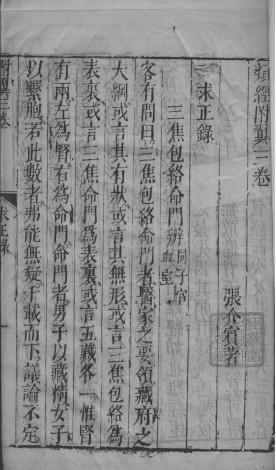 類經附翼三卷
張介賓著
求正錄
三焦包絡命門辨同子宮血室
客有問曰三焦包絡命門者醫家之要領藏府之
大綱或言其有狀或言其無形或言三焦包絡爲
表裏或言三焦命門爲表裏或言五藏各一惟腎
有兩左爲腎右爲命門命門者男子以藏精女子
以繫胞若此數者弗能無疑千載而下議論不定
附翼三卷
求正錄